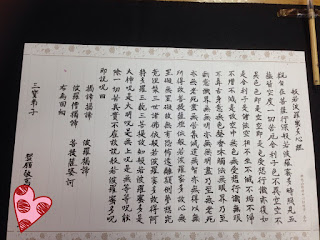 般若波羅蜜多心經
觀自在菩薩行深般若波羅蜜多時照見五
蘊皆空度一切苦厄舍利子色不異空空不
異色色即是空空即是色受想行識亦復如
是舍利子是諸法空相不生不滅不垢不淨
不增不減是故空中無色無受想行識無眼
耳鼻舌身意無色聲香味觸法無眼界乃至
無意識界無無明亦無無明盡乃至無老死
亦無老死盡無苦集滅道無智亦無得以無
所得故菩提薩埵依般若波羅蜜多故心無
罣礙無罣礙故無有恐怖遠離顛倒夢想究
竟涅槃三世諸佛依般若波羅蜜多故得阿
耨多羅三藐三菩提故知般若波羅蜜多是
大神咒是大明咒是無上咒是無等等咒能
除一切苦真實不虛故說般若波羅蜜多咒
即說咒曰
揭諦揭諦 波羅揭諦
波羅僧揭諦 菩提薩婆訶
右為回向
三寶弟子